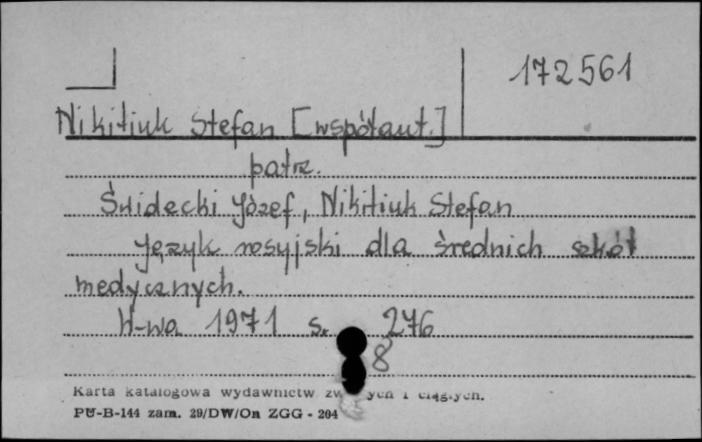 172561
Nikitiuk Stefan [współaut.]
patrz.
Śnidecki Józef, Nikitiuk Stefan
Język rosyjski dla średnich szkół
medycznych.
W-wa 1971 s. 276
8
Karta katalogowa wydawnictw
PU-B-144 zam. 29/DW/On ZGG - 204